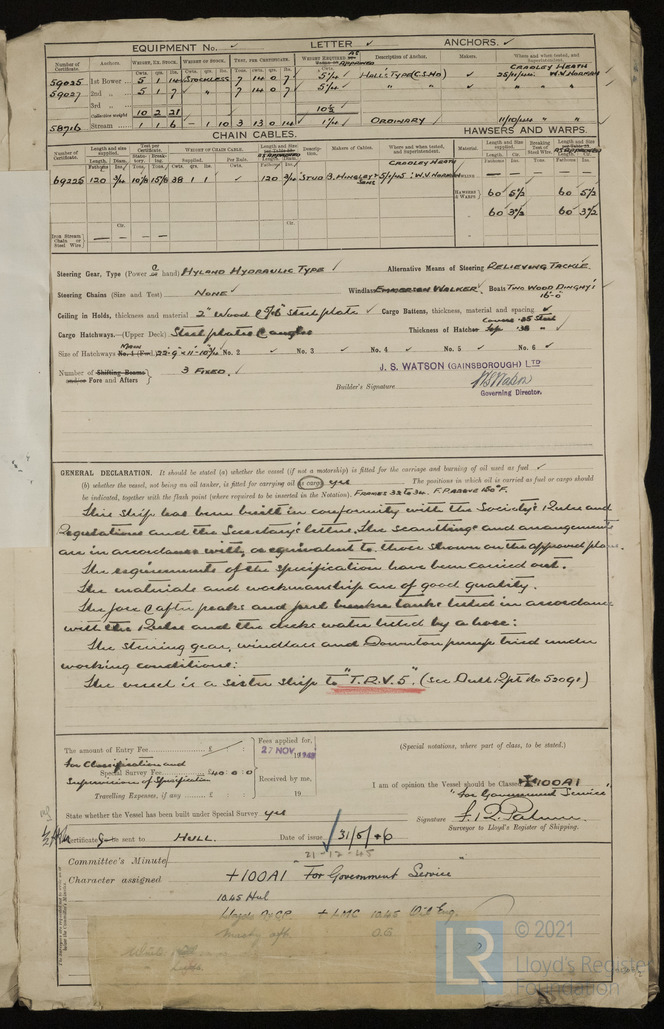 EQUIPMENT No. ✓ LETTER ✓ ANCHORS. ✓
Number of Certificate. Anchors. Weight, Ex. Stock. Weight of Stock. Test, per Certificate. Weight Required Description of Anchor. Makers. Where and when tested, and Superintendent.
59025 1st Bower 5 1 14 Stockless 7 14 0 7 5¼ Hall's Type (C.S.Hd) ✓ Cradley Heath 25/11/44 W.V. Norman
59027 2nd „ 5 1 7 „ 7 14 0 7 5¼ „ „ „ „
3rd „
Collective weight 10 2 21 10½
58716 Stream 1 1 6 – 1 10 3 13 0 14 1¼ Ordinary 11/10/44 „ „
CHAIN CABLES. HAWSERS AND WARPS.
Number of Certificate. Length and size supplied. Test per Certificate. Weight of Chain Cable. Description. Makers of Cables. Where and when tested, and Superintendent. Material. Length and Size supplied. Breaking Test of Steel Wire.
69225 120 ¾ 38 1 1 ✓ 120 ¾ Stud B. Hingley & Sons Cradley Heath 5/1/45 W.V. Norman
Hawsers & Warps 60 5½ 60 5½
60 3½ 60 3½
Iron Stream Chain or Steel Wire
Steering Gear, Type (Power or hand) Hyland Hydraulic Type ✓ Alternative Means of Steering Relieving Tackle.
Steering Chains (Size and Test) None ✓ Windlass Emmerson Walker. Boats Two Wood Dinghy's 16'-0"
Ceiling in Holds, thickness and material 2" Wood & 5/16" Steel plate ✓ Cargo Battens, thickness, material and spacing ✓
Cargo Hatchways.—(Upper Deck) Steel plates & angles Thickness of Hatches Covers .25 Steel
Size of Hatchways No. 1 (Fwd.) Main No. 2 ✓ No. 3 ✓ No. 4 ✓ No. 5 ✓ No. 6 ✓
Number of Shifting Beams and/or Fore and Afters } 3 Fixed. ✓
J. S. WATSON (GAINSBOROUGH) LTD
Builder's Signature J S Watson
Governing Director.
GENERAL DECLARATION. It should be stated (a) whether the vessel (if not a motorship) is fitted for the carriage and burning of oil used as fuel ✓
(b) whether the vessel, not being an oil tanker, is fitted for carrying oil as cargo yes The positions in which oil is carried as fuel or cargo should
be indicated, together with the flash point (where required to be inserted in the Notation). Frames 32 to 34. F.P. above 150°F.
This ship has been built in conformity with the Society's Rules and
Regulations and the Secretary's letters. The scantlings and arrangements
are in accordance with, or equivalent to, those shown on the approved plans.
The requirements of the specification have been carried out.
The materials and workmanship are of good quality.
The fore & after peaks and fuel bunker tanks tested in accordance
with the Rules and the decks water tested by a hose:
The steering gear, windlass and Downton pump tried under
working conditions:
The vessel is a sister ship to "T.R.V.5." (see Hull Rpt. No 52091)
The amount of Entry Fee £ : Fees applied for, 27 NOV 1945 (Special notations, where part of class, to be stated.)
For Classification and
Special Survey Fee £40 : 0 : 0
Supervision of Specification Received by me,
Travelling Expenses, if any £ : : 19
I am of opinion the Vessel should be Classed ✠100A1
"For Government Service"
State whether the Vessel has been built under Special Survey yes Signature
Surveyor to Lloyd's Register of Shipping.
Certificate to be sent to HULL. Date of issue 31/5/46
Committee's Minute 21-12-45
Character assigned +100A1 For Government Service
10.45 Hul
Lloyds A&CP + LMC 10.45 Oil Eng.
Machy aft. O.G.
© 2021
Lloyd's Register
Foundation
LR